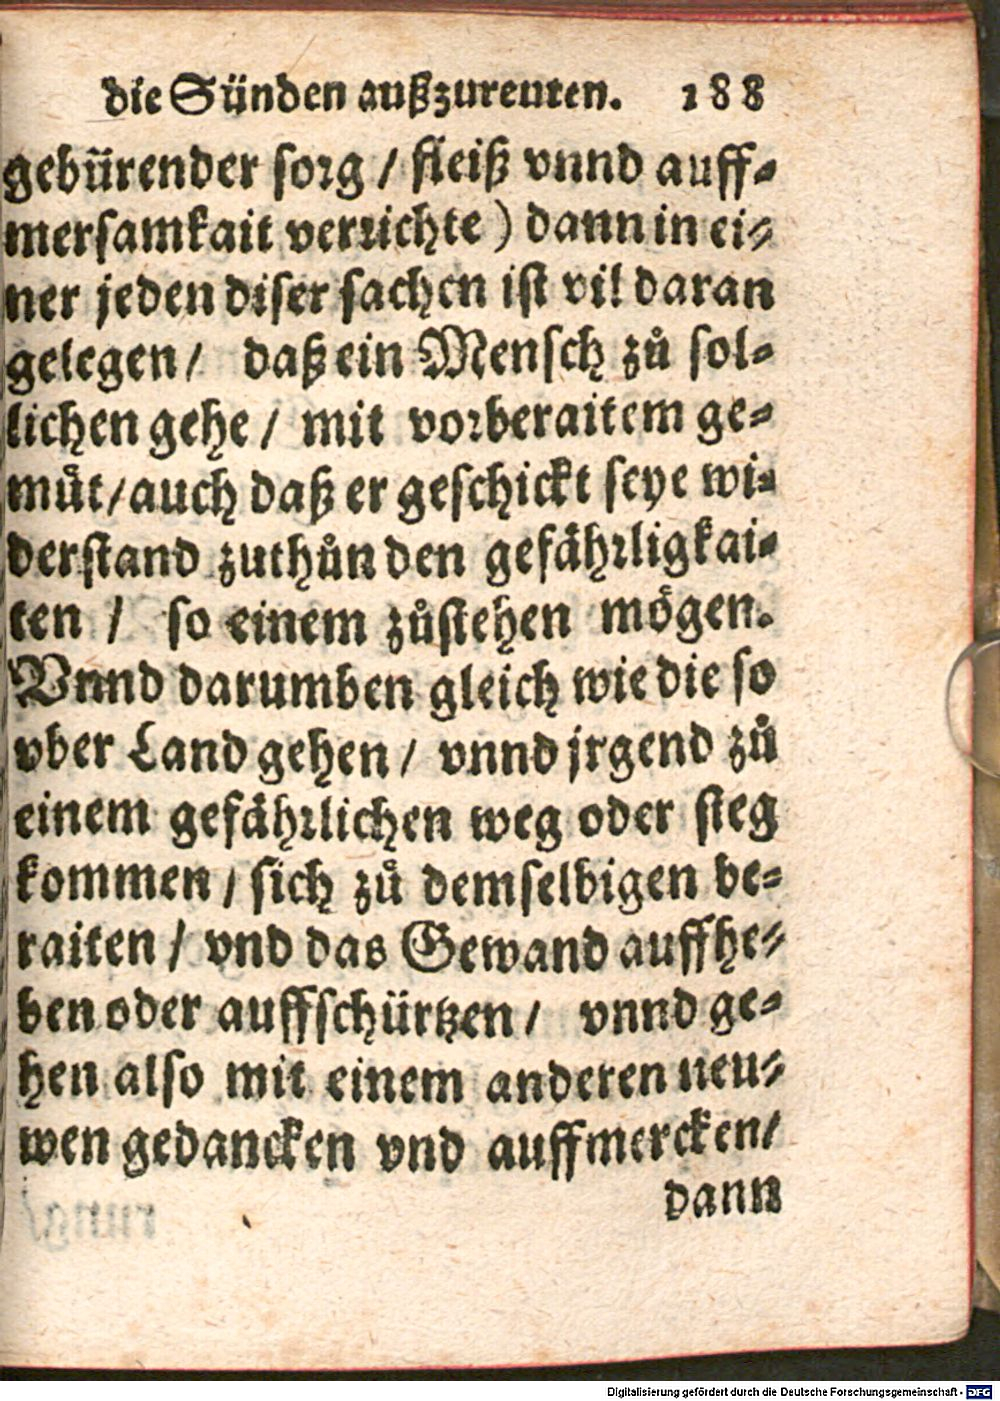 die Sünden außzureuten. 188
gebürender sorg / fleiß vnnd auff-
mersamkait verrichte) dann in ei-
ner jeden diser sachen ist vil daran
gelegen / daß ein Mensch zů sol-
lichen gehe / mit vorberaitem ge-
műt / auch daß er geschickt seye wi-
derstand zuthůn den gefährligkai-
ten / so einem zůstehen mögen.
Vnnd darumben gleich wie die so
vber Land gehen / vnnd jrgend zů
einem gefährlichen weg oder steg
kommen / sich zů demselbigen be-
raiten / vnd das Gewand auffhe-
ben oder auffschürtzen / vnnd ge-
hen also mit einem anderen neu-
wen gedancken vnd auffmercken /
dann
Digitalisierung gefördert durch die Deutsche Forschungsgemeinschaft - DFG